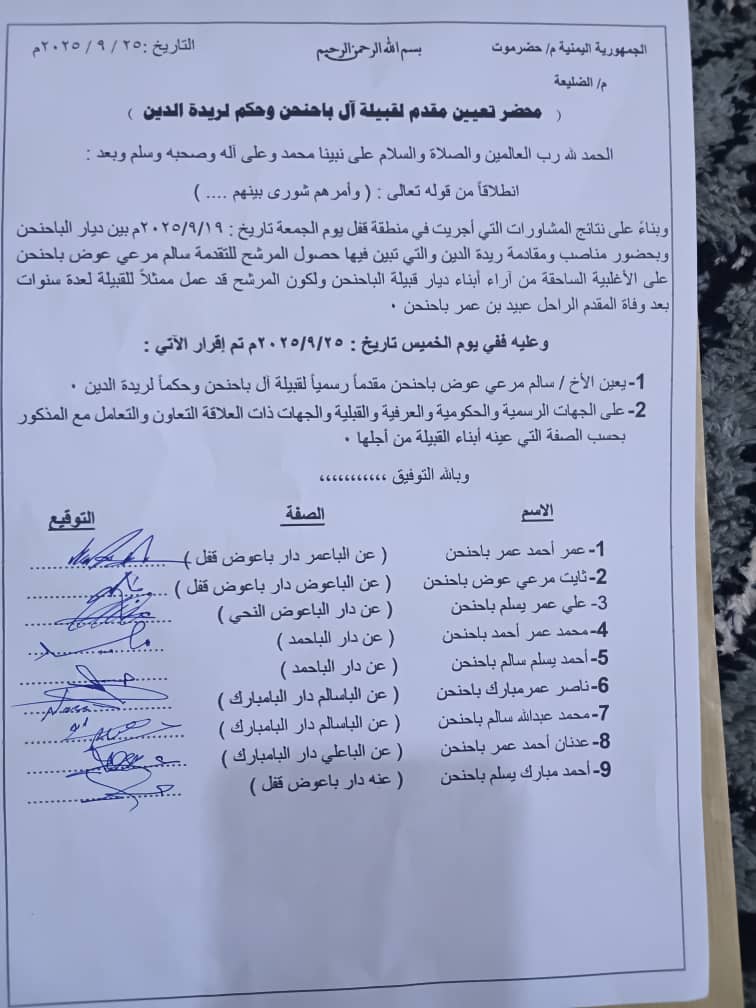 الجمهورية اليمنية م/ حضرموت
بسم الله الرحمن الرحيم
التاريخ :٢٠٢٥ / ٩ / ٢٥م
م/ الضليعة
( محضر تعيين مقدم لقبيلة آل باحنحن وحكم لريدة الدين )
الحمد لله رب العالمين والصلاة والسلام على نبينا محمد وعلى آله وصحبه وسلم وبعد :
انطلاقاً من قوله تعالى : ( وأمرهم شورى بينهم .... )
وبناءً على نتائج المشاورات التي أجريت في منطقة قفل يوم الجمعة تاريخ : ٢٠٢٥/٩/١٩م بين ديار الباحنحن
وبحضور مناصب ومقادمة ريدة الدين والتي تبين فيها حصول المرشح للتقدمة سالم مرعي عوض باحنحن
على الأغلبية الساحقة من آراء أبناء ديار قبيلة الباحنحن ولكون المرشح قد عمل ممثلاً للقبيلة لعدة سنوات
بعد وفاة المقدم الراحل عبيد بن عمر باحنحن .
وعليه ففي يوم الخميس تاريخ : ٢٠٢٥/٩/٢٥م تم إقرار الآتي :
1- يعين الأخ / سالم مرعي عوض باحنحن مقدماً رسمياً لقبيلة آل باحنحن وحكماً لريدة الدين .
2- على الجهات الرسمية والحكومية والعرفية والقبلية والجهات ذات العلاقة التعاون والتعامل مع المذكور
بحسب الصفة التي عينه أبناء القبيلة من أجلها .
وبالله التوفيق ،،،،،،،،،،،
الاسم الصفة التوقيع
1- عمر أحمد عمر باحنحن ( عن الباعمر دار باعوض قفل )
2- ثابت مرعي عوض باحنحن ( عن الباعوض دار باعوض قفل )
3- علي عمر يسلم باحنحن ( عن دار الباعوض النحي )
4- محمد عمر أحمد باحنحن ( عن دار الباحمد )
5- أحمد يسلم سالم باحنحن ( عن دار الباحمد )
6- ناصر عمرمبارك باحنحن ( عن الباسالم دار البامبارك )
7- محمد عبدالله سالم باحنحن ( عن الباسالم دار البامبارك )
8- عدنان أحمد عمر باحنحن ( عن الباعلي دار البامبارك )
9- أحمد مبارك يسلم باحنحن ( عنه دار باعوض قفل )